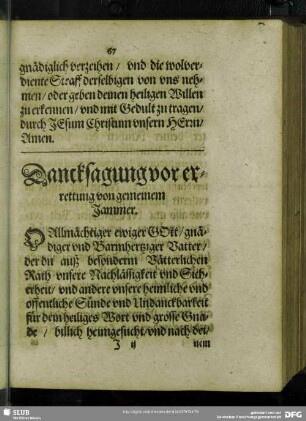 67
gnädiglich verzeihen / vnd die wolver-
diente Straff derselbigen von vns neh-
men / oder geben deinen heiligen Willen
zu erkennen / vnd mit Gedult zu tragen /
durch JEsum Christum vnsern HErrn /
Amen.
Dancksagung vor er-
rettung von gemeinem
Jammer.
O Allmächtiger ewiger GOtt / gnä-
diger vnd Barmhertziger Vatter /
der du auß besonderm Vätterlichen
Rath vnsere Nachlässigkeit vnd Sich-
erheit / vnd andere vnsere heimliche vnd
offentliche Sünde vnd Undanckbarkeit
für dein heiliges Wort vnd grosse Gna-
de / billich heimgesucht / vnd nach dei-
J ij nem
SLUB
DFG